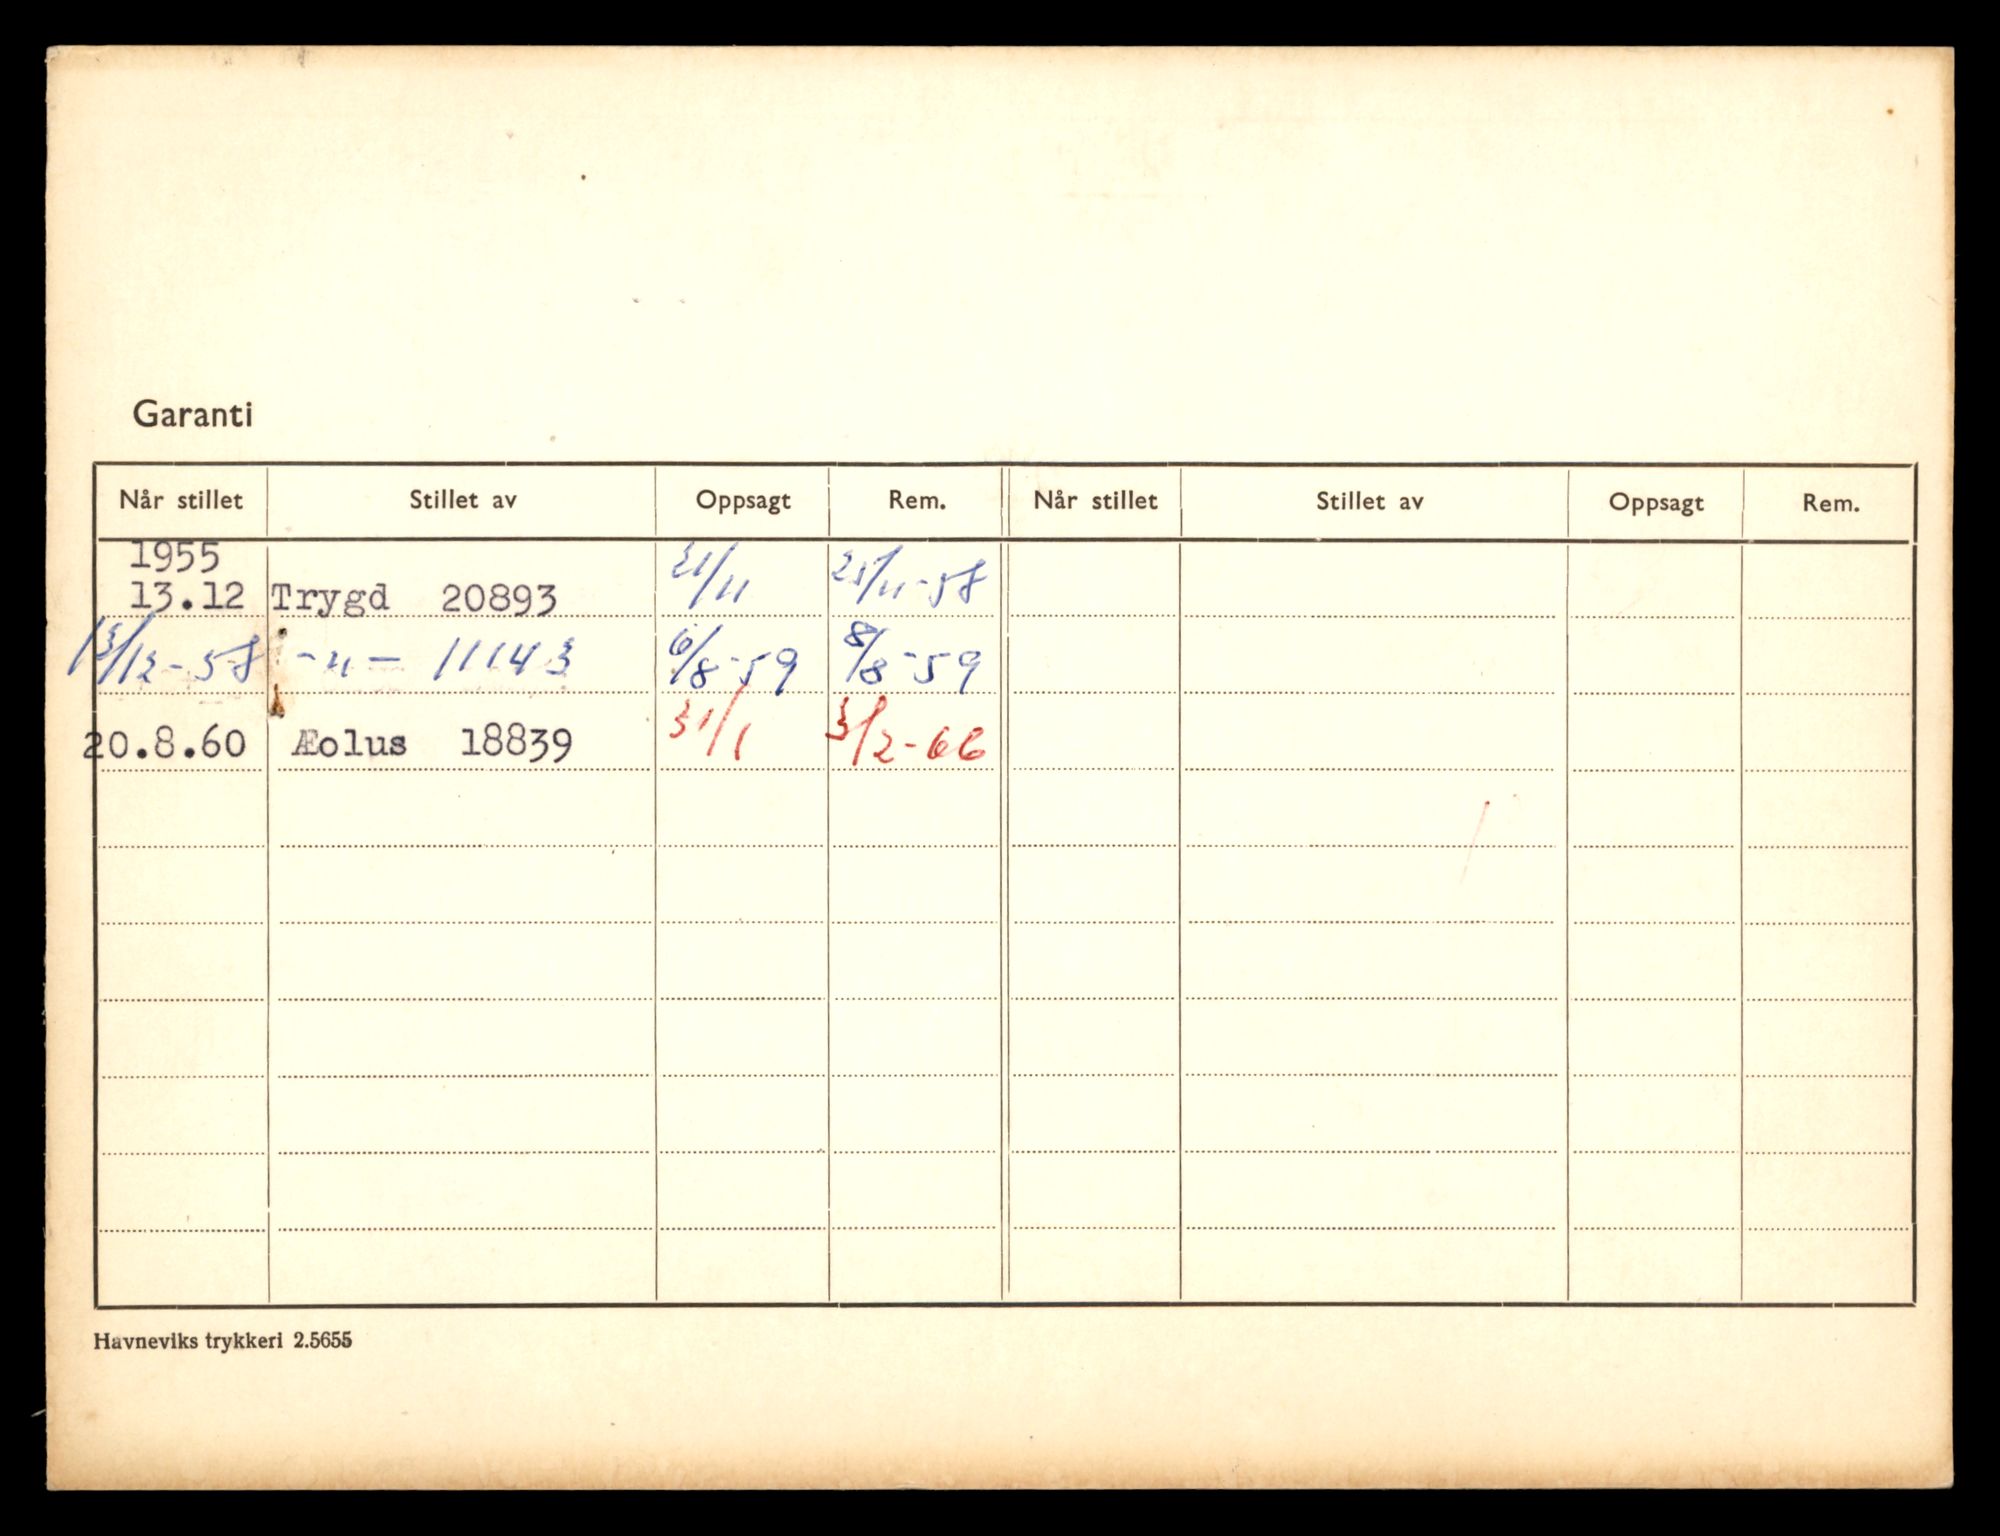 Garanti
Når stillet Stillet av Oppsagt Rem. Når stillet Stillet av Oppsagt Rem.
1955
13.12 Trygd 20893 21/11 25/11-58
13/12-58 -"- 11143 6/8-59 8/8-59
20.8.60 Æolus 18839 31/1 3/2-66
Havneviks trykkeri 2.5655